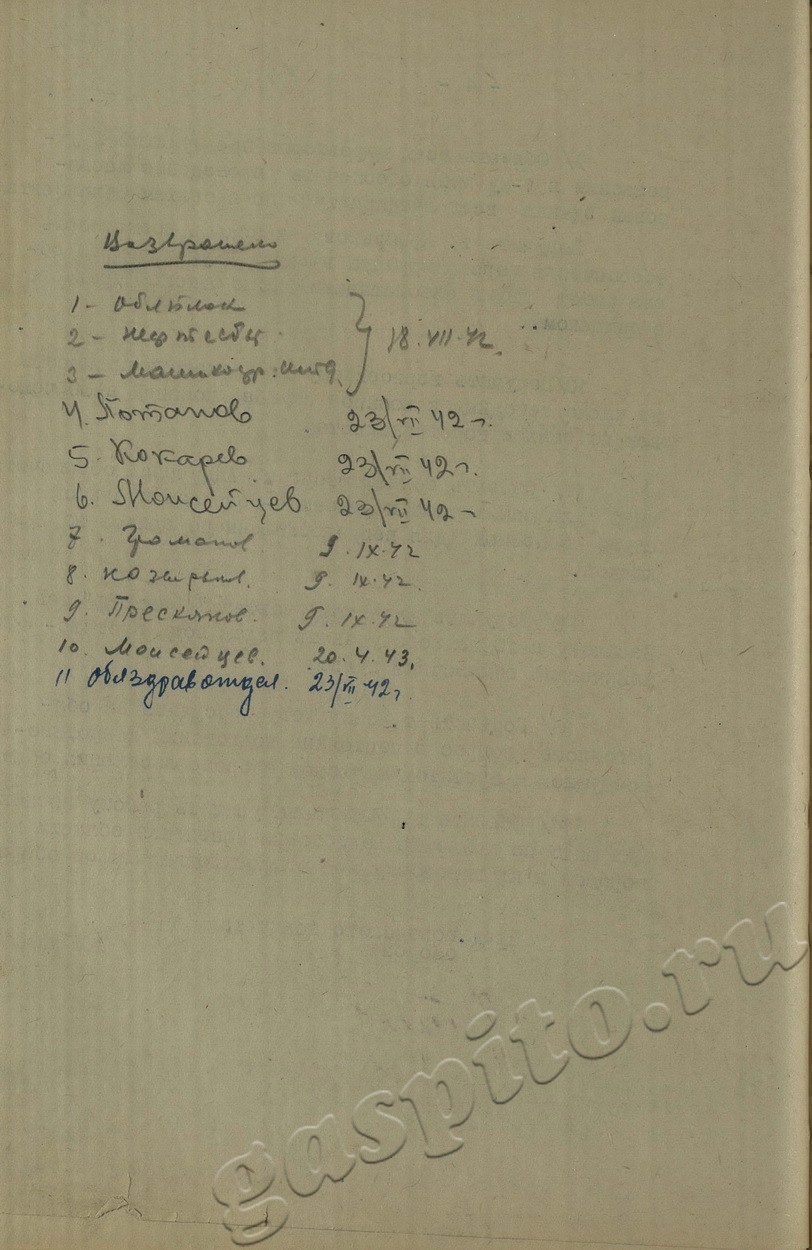 Возвращено
1 - Облтоп
2 - Нефтесбыт
3 - Машкопр. инд. } 18.VII.42.
4. Потапов 23/VII 42 г.
5. Кокарев 23/VII 42 г.
6. Моисейцев 23/VII 42 г.
7. Громанов 9.IX.42
8. 9.IX.42.
9. 9.IX.42
10. Моисейцев. 20.4.43.
11 Облздравотдел. 23/VII 42 г.
gaspito.ru